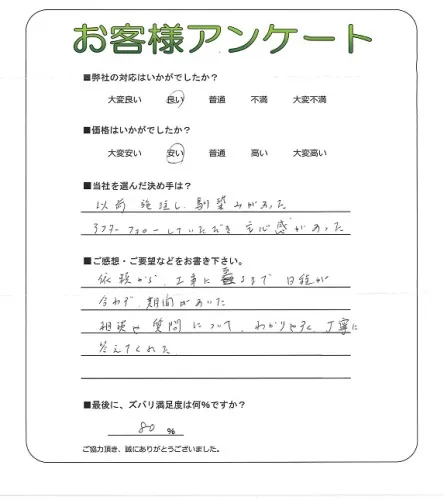 お客様アンケート
■弊社の対応はいかがでしたか？
大変良い 良い 普通 不満 大変不満
■価格はいかがでしたか？
大変安い 安い 普通 高い 大変高い
■当社を選んだ決め手は？
以前 施注し、馴染みがあった
アフターフォローしていただき 安心感があった
■ご感想・ご要望などをお書き下さい。
依頼から、工事に至るまで 日程が
合わず、期間があいた
相談や質問について、わかりやすく、丁寧に
答えてくれた
■最後に、ズバリ満足度は何％ですか？
80 ％
ご協力頂き、誠にありがとうございました。